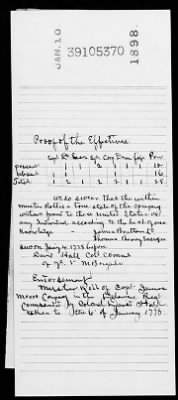 JAN. 10
39105370
1898.
Proof of the Effectives
Capt Lt Ens Sgt Corp Drum fife Priv
present 1 1 1 2 1 1 12
absent 1 1 16
Total 1 2 1 1 28
We do swear that the within
muster Roll is a true state of the company
without fraud to these United States or
any Individual according to the best of our
Knowledge
James
Thomas
sworn Jany 4, 1778 before
David Hall Col. Comm
of ye. 1st M. Brigade
Endorsement
Muster Roll of Capt James
Moore Company in the Delaware Reg
Commanded by Colonel David Hall
taken to the 6 of January 1778